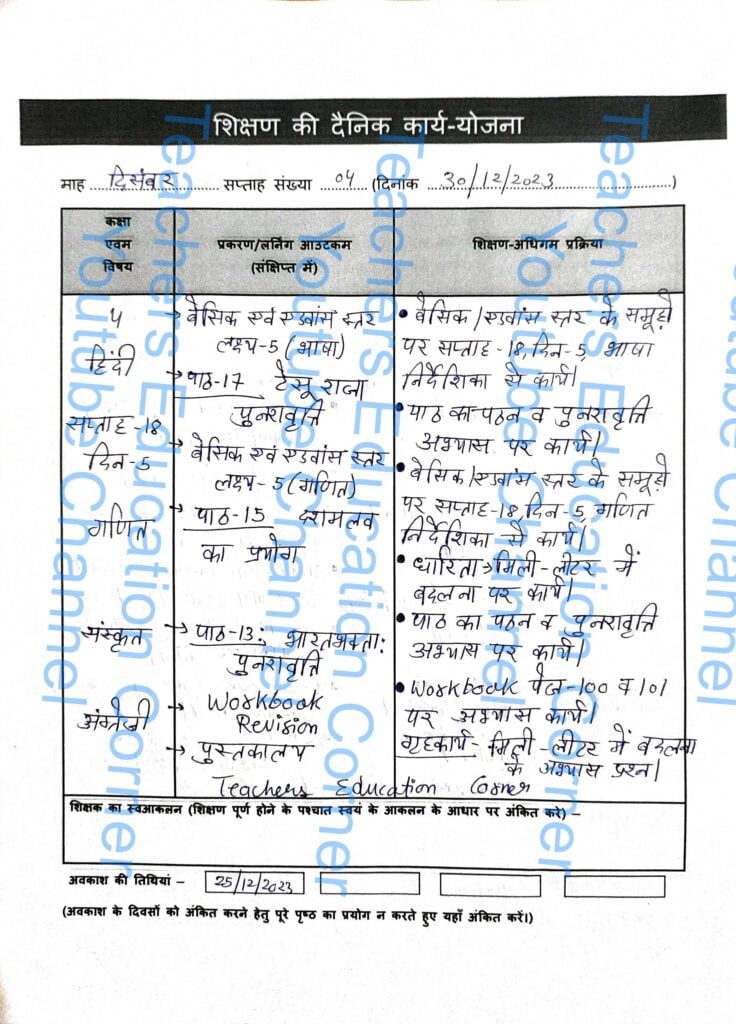 शिक्षण की दैनिक कार्य-योजना
माह दिसंबर सप्ताह संख्या 04 (दिनांक 30/12/2023)
कक्षा
एवम
विषय
प्रकरण/लर्निंग आउटकम
(संक्षिप्त में)
शिक्षण-अधिगम प्रक्रिया
5
हिंदी
सप्ताह-18
दिन-5
गणित
संस्कृत
अंग्रेजी
→ बेसिक एवं एडवांस स्तर
लक्ष्य-5 (भाषा)
→ पाठ-17 टेसू राजा
पुनरावृत्ति
→ बेसिक एवं एडवांस स्तर
लक्ष्य-5 (गणित)
→ पाठ-15 दशमलव
का प्रयोग
→ पाठ-13: भारतभक्ता:
पुनरावृत्ति
→ Workbook
Revision
→ पुस्तकालय
• बेसिक/एडवांस स्तर के समूहो
पर सप्ताह-18, दिन-5, भाषा
निर्देशिका से कार्य।
• पाठ का पठन व पुनरावृत्ति
अभ्यास पर कार्य।
• बेसिक/एडवांस स्तर के समूहो
पर सप्ताह-18, दिन-5, गणित
निर्देशिका से कार्य।
• धारिता → मिली-लीटर में
बदलना पर कार्य।
• पाठ का पठन व पुनरावृत्ति
अभ्यास पर कार्य।
• Workbook पेज-100 व 101
पर अभ्यास कार्य।
गृहकार्य- मिली-लीटर में बदलना
के अभ्यास प्रश्न।
Teachers Education Corner
शिक्षक का स्वआकलन (शिक्षण पूर्ण होने के पश्चात स्वयं के आकलन के आधार पर अंकित करे) –
अवकाश की तिथियां – 25/12/2023
(अवकाश के दिवसों को अंकित करने हेतु पूरे पृष्ठ का प्रयोग न करते हुए यहाँ अंकित करें।)
Teachers Education Corner
Youtube Channel
Teachers Education Corner
Youtube Channel
Teachers Education Corner
Youtube Channel